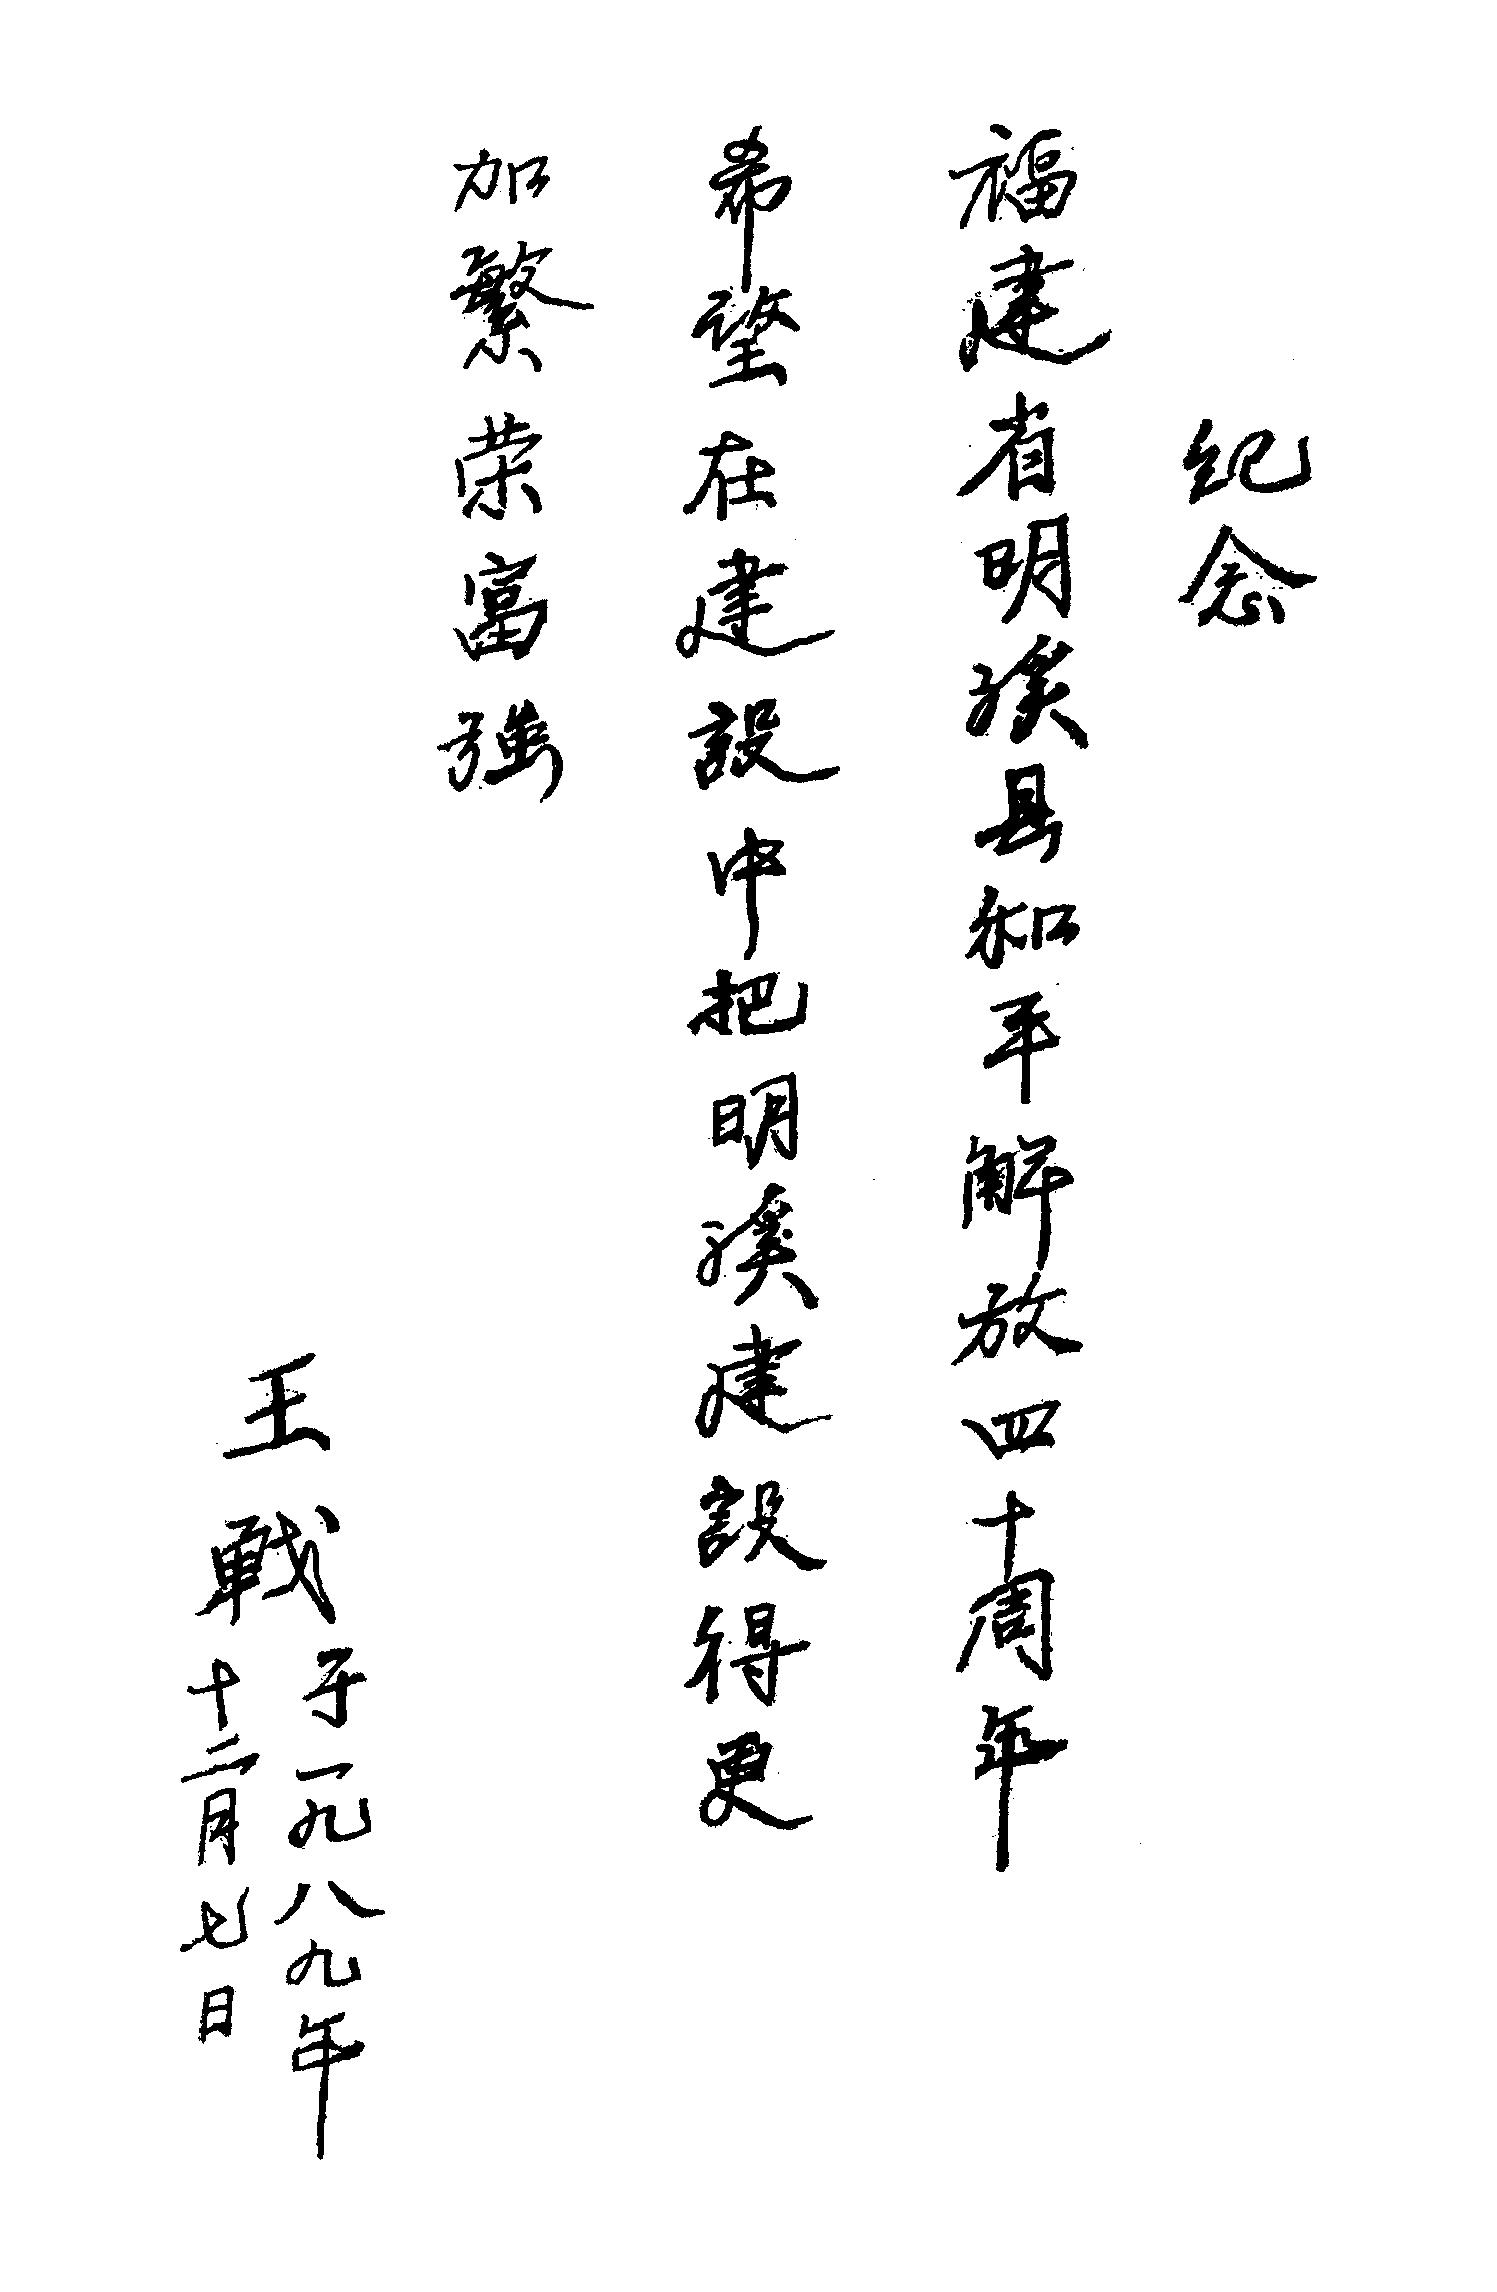 纪念
福建省明溪县和平解放四十周年
希望在建設中把明溪建設得更
加繁荣富強
王戰
于一九八九年
十二月七日